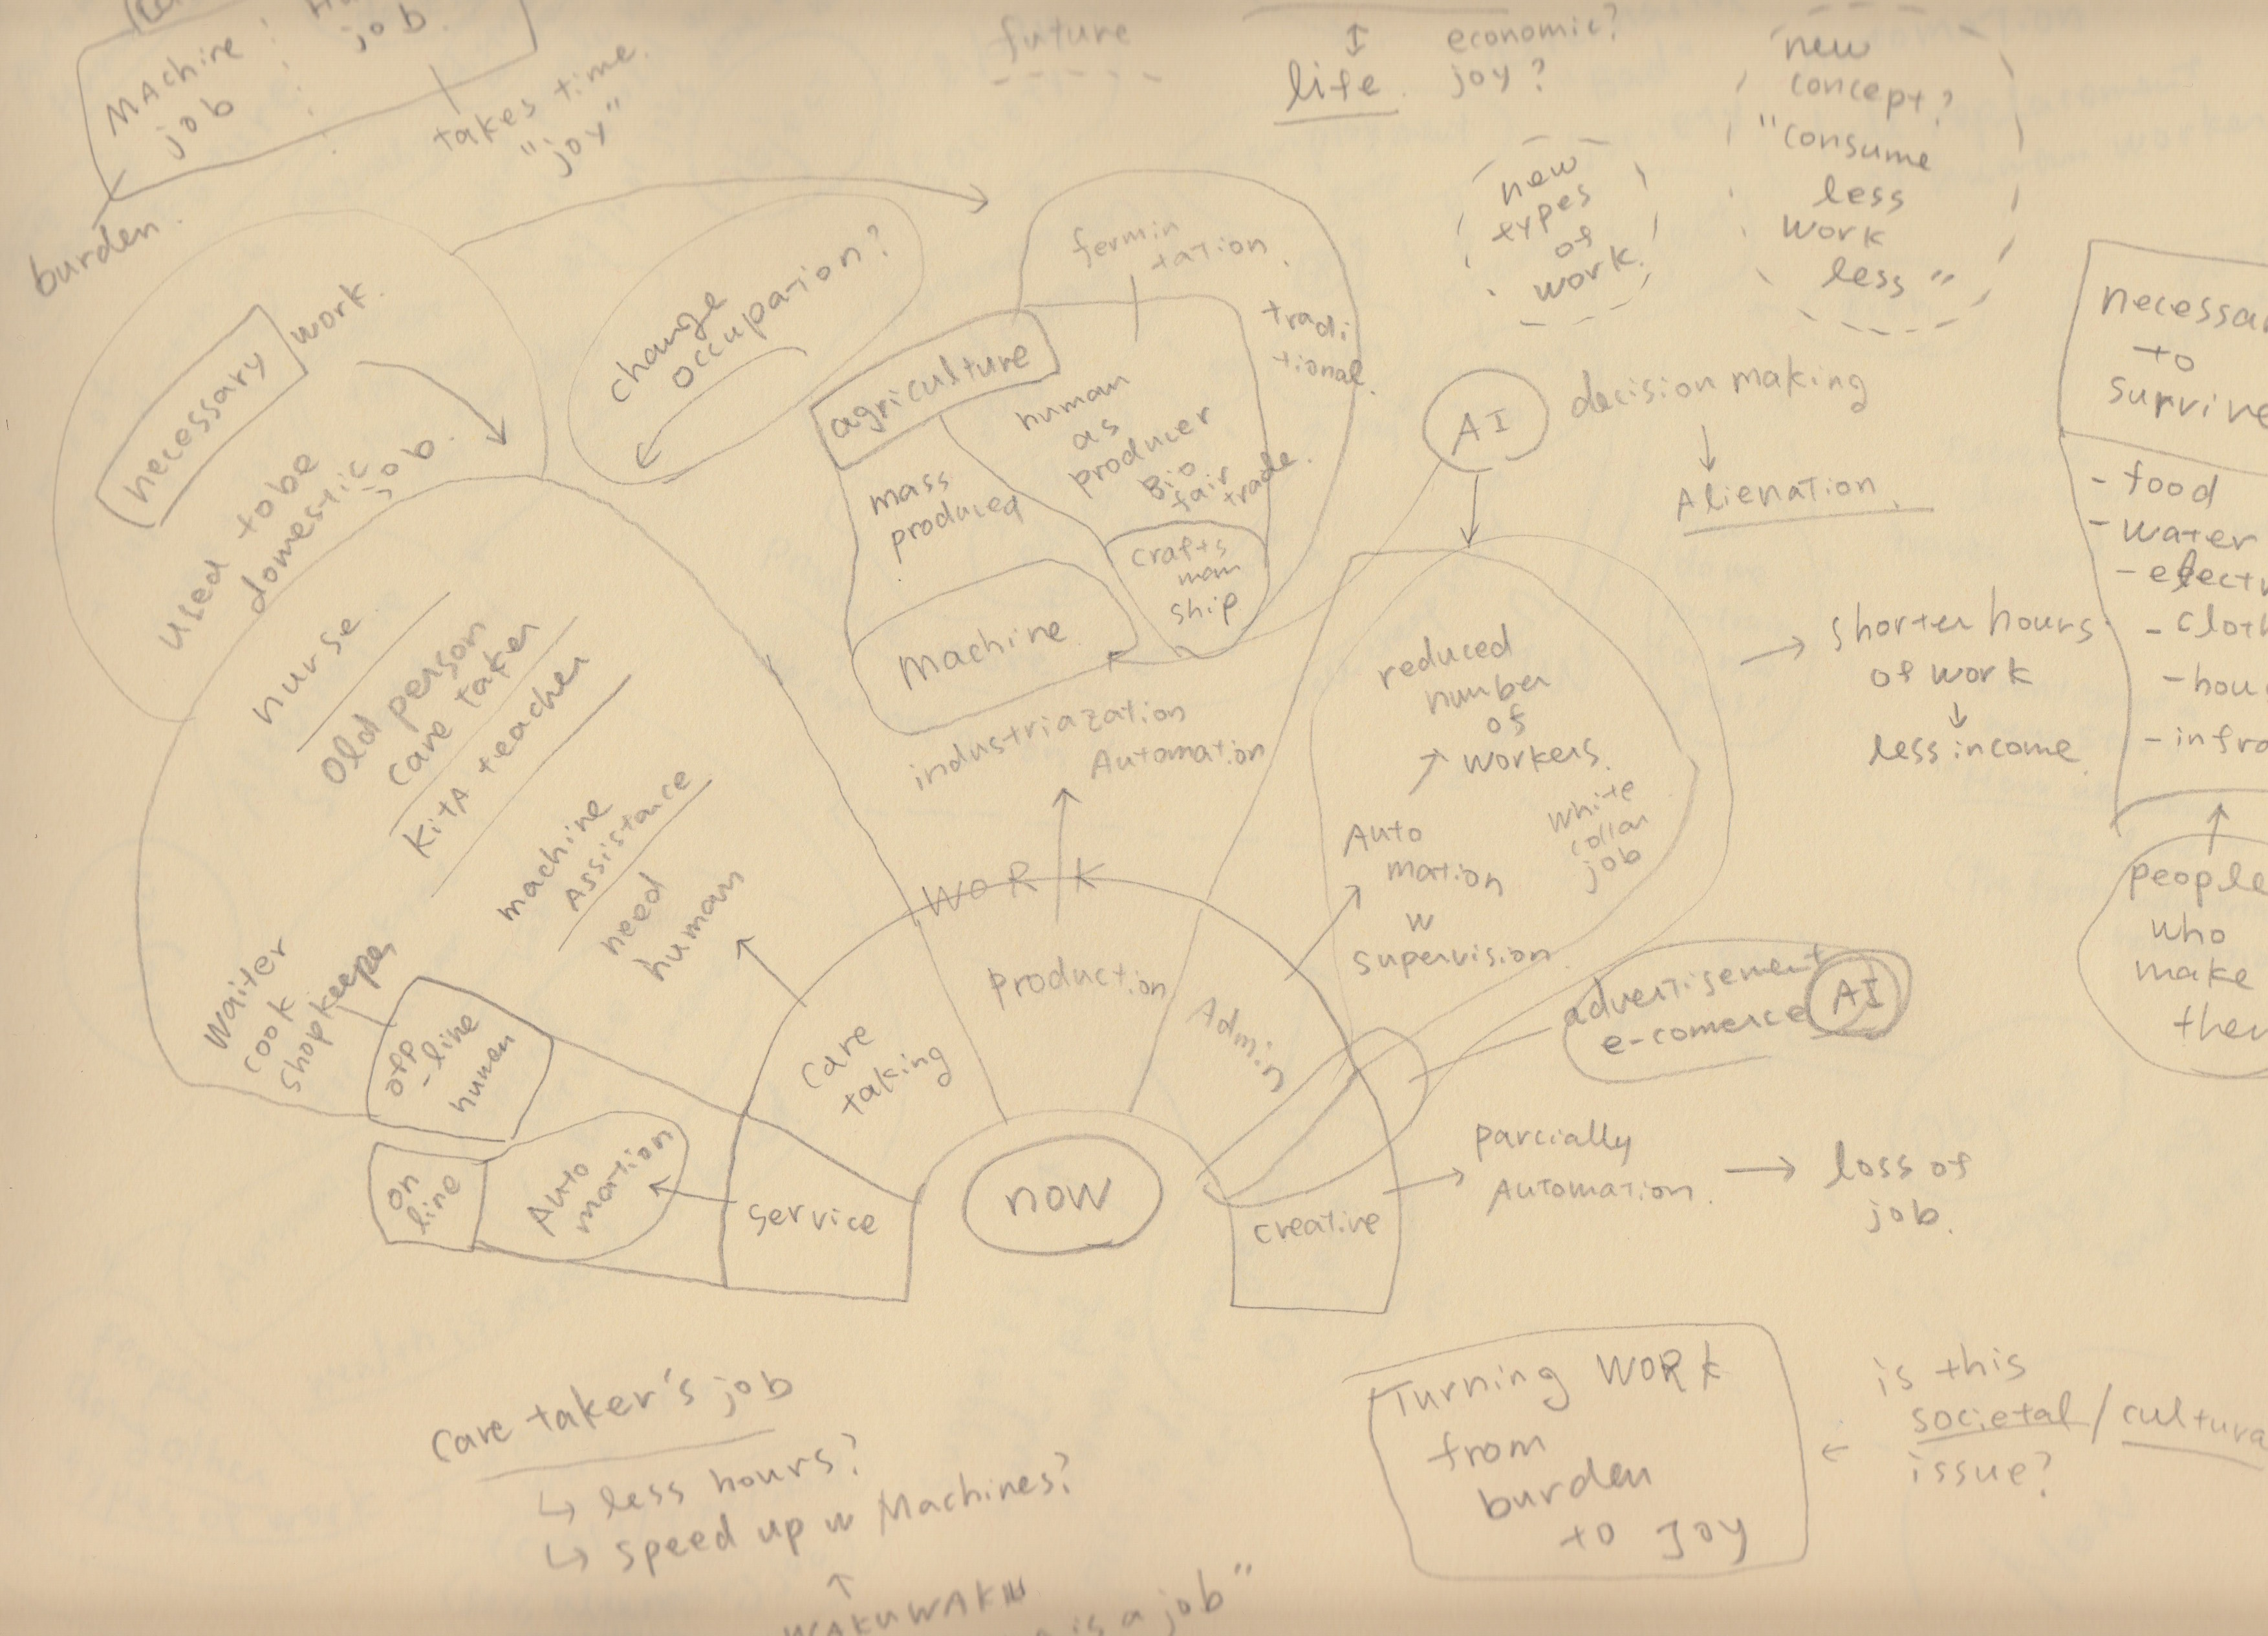 MAchine
job
job.
takes time.
"joy"
burden.
future
life
economic?
joy?
new
concept?
"consume
less
work
less"
new
types
of
work.
necessary work.
used to be
domestic
job.
change
occupation?
fermin
tation.
tradi
tional.
agriculture
human
as
producer
Bio
fair
trade.
mass
produced
crafts
man
ship
Machine
industriazation
Automation
AI
decision making
Alienation.
reduced
number
of
workers.
white
collar
job
Auto
mation
w
supervision.
shorter hours
of work
less income.
to
survive
- food
- water
people
who
make
nurse.
old person
care taker
kitA teacher
machine
Assistance
need
human
waiter
cook
shopkeeper
off
-line
human
on
line
Auto
mation
WORK
service
care
taking
production
Admin
creative
now
advertisement
e-comerce
AI
parcially
Automation.
loss of
job.
care taker's job
less hours?
speed up w Machines?
WAKUWAKU
is a job"
Turning WORK
from
burden
to Joy
is this
societal /
issue?